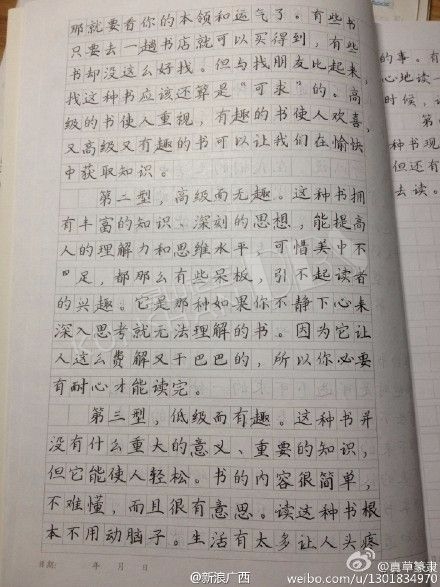 那就要看你的本领和运气了。有些书
只要去一趟书店就可以买得到,有些
书却没这么好找。但与找朋友比起来,
找这种书应该还算是“可求”的。高
级的书使人重视,有趣的书使人欢喜,
又高级又有趣的书可以让我们在愉快
中获取知识。
第二型,高级而无趣。这种书拥
有丰富的知识、深刻的思想,能提高
人的理解力和思维水平,可惜美中不
足,都那么有些呆板,引不起读者
的兴趣。它是那种如果你不静下心来
深入思考就无法理解的书。因为它让
人这么费解又干巴巴的,所以你必要
有耐心才能读完。
第三型,低级而有趣。这种书并
没有什么重大的意义、重要的知识,
但它能使人轻松。书的内容很简单,
不难懂,而且很有意思。读这种书根
本不用动脑子。生活有太多让人头疼
日期: 年 月 日
的事。有
心地读
时候,
第
种书现
但还有
去读。
@新浪广西
@真草篆隶
weibo.com/u/1301834970